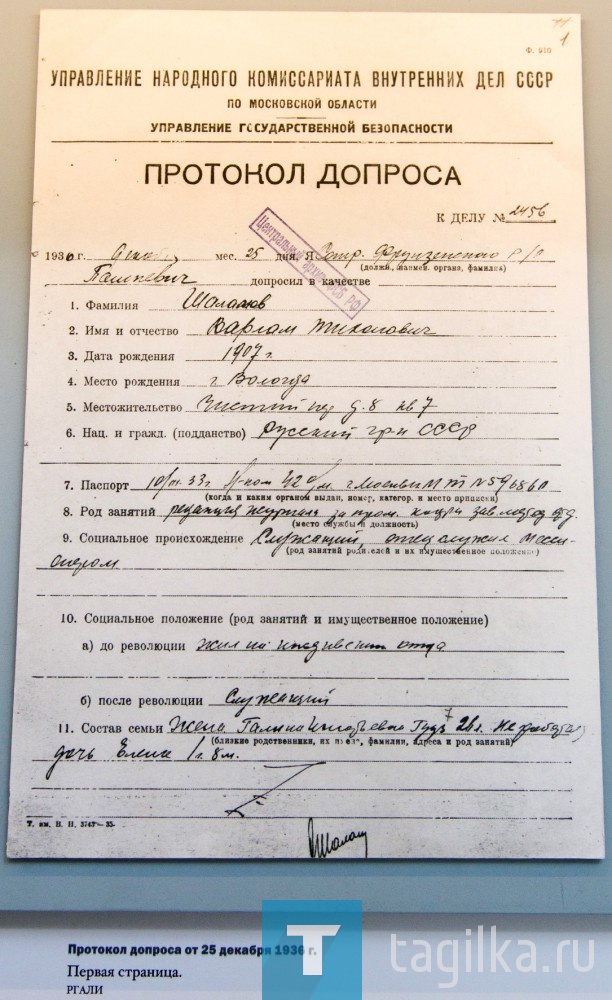 11
1
Ф. № 10
УПРАВЛЕНИЕ НАРОДНОГО КОМИССАРИАТА ВНУТРЕННИХ ДЕЛ СССР
ПО МОСКОВСКОЙ ОБЛАСТИ
УПРАВЛЕНИЕ ГОСУДАРСТВЕННОЙ БЕЗОПАСНОСТИ
ПРОТОКОЛ ДОПРОСА
К ДЕЛУ № 2456
Центральный архив ФСБ РФ
1936 г. декабр мес. 25 дня. Я Фрунзенского Р/О
(должн., наимен. органа, фамилия)
Пашкевич допросил в качестве
1. Фамилия Шаламов
2. Имя и отчество Варлам Тихонович
3. Дата рождения 1907 г.
4. Место рождения г. Вологда
5. Местожительство Чистый пер д. 8 кв 7
6. Нац. и гражд. (подданство) русский гр-н СССР
7. Паспорт 33 г. г. Москвы № 596860
(когда и каким органом выдан, номер, категор. и место приписки)
8. Род занятий редакция журнала за пром. кадры зав.
(место службы и должность)
9. Социальное происхождение Служащий, отец служил мисси-
(род занятий родителей и их имущественное положение)
онером
10. Социальное положение (род занятий и имущественное положение)
а) до революции жил на иждивении отца
б) после революции Служащий
11. Состав семьи Жена Галина Гудзь 26 л. не
(близкие родственники, их имена, фамилии, адреса и род занятий)
дочь Елена 1 г. 8 м.
Т. им. В. И. 3743—35.
Шалам
Протокол допроса от 25 декабря 1936 г.
Первая страница.
РГАЛИ
T tagilka.ru